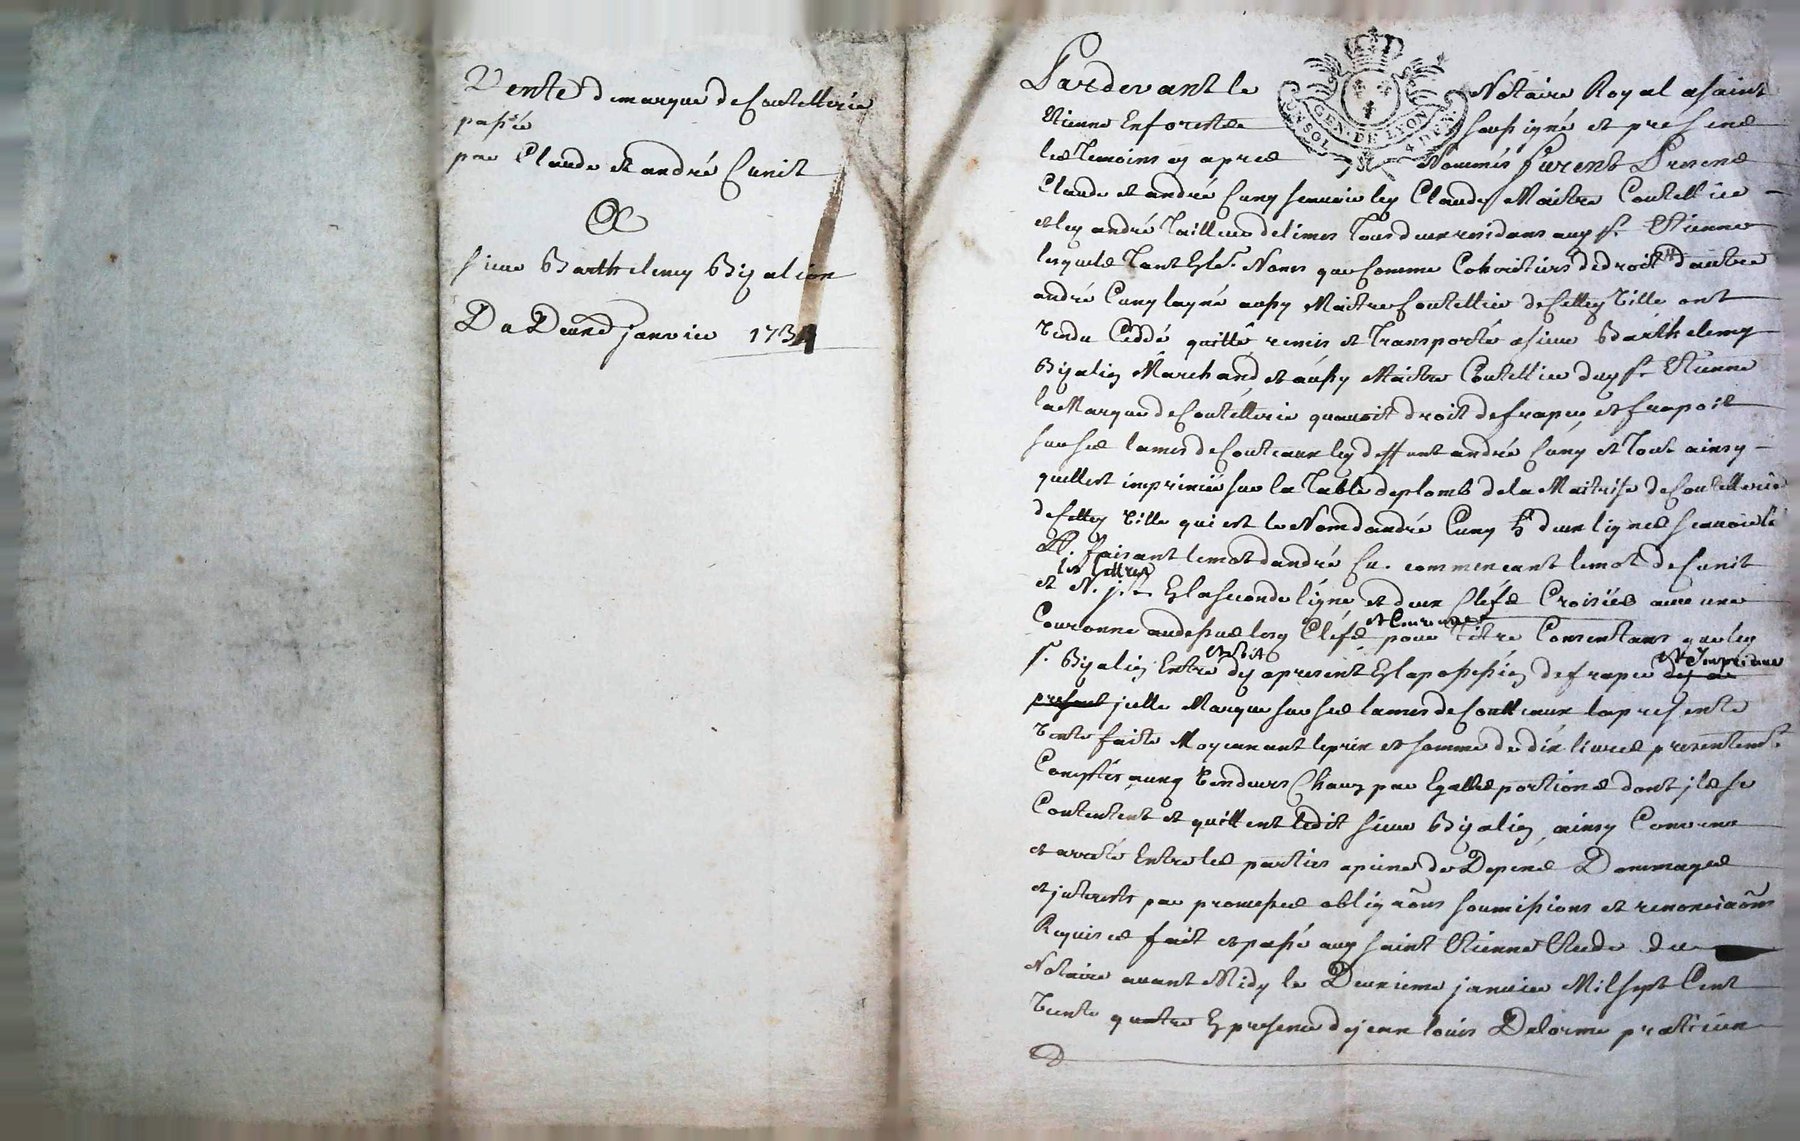 Vente de marque de Coutellerie
passée
par Claude et andré Cunit
A
sieur Barthelemy Bigalion
Du Deux janvier 1734
Pardevant le Notaire Royal a saint
Etienne En forest soussigné et presens
les temoins cy apres Nommés furent Presens
Claude et andré Cuny scavoir ley Claude Maitre Coutellier
et ley andré Tailleur de limes Tous deux residans auy St Etienne
lesquels Tant Es Noms que Comme Cohoritiers de droit d'autre
andré Cuny layné aussy Maitre Coutellier de Cettey Ville ont
Vendu Ceddé quitté remis et Transporté a sieur Barthelemy
Bigalion Marchand et aussy Maitre Coutellier duy St Etienne
la Marque de Coutellerie quavoit droit de fraper et frapoit
sur ses lames de Couteaux ley deffunt andré Cuny et Tout ainsy
quelle est imprimée sur la Table de plomb de la Maitrise de Coutellerie
de Cettey Ville qui est le Nom dandré Cuny deux lignes scavoir
A. faisant le mot dandré Cu. commencant le mot de Cunit
les lettres
et N. j. t. En la seconde ligne et deux Clefs Croisées avec une
Couronne audessus lesq Clefs et Couronne pour Titre Consentans que ley
Sr Bigalion Entre dez apresent En la possession de fraper et Imprimer
jcelle Marque sur ses lames de Coutteaux la presente
Vente faite Moyennant le prix et somme de dix livres presentemt
Comptés auxq Vendeurs Chacun par Egalles portions dont jls se
Contentent et quittent ledit sieur Bigalion ainsy Convenu
et arreté Entre les parties a peine de Depens Dommages
et jnterests par promesses obligaons soumissions et renonciaons
Requises fait et passé auy saint Etienne Etude du
Notaire avant Midy le Deuxieme janvier Mil sept Cent
Trente quatre En presence de jean louis Delorme praticien
GEN. DE LYON
UN SOL
4 DEN.